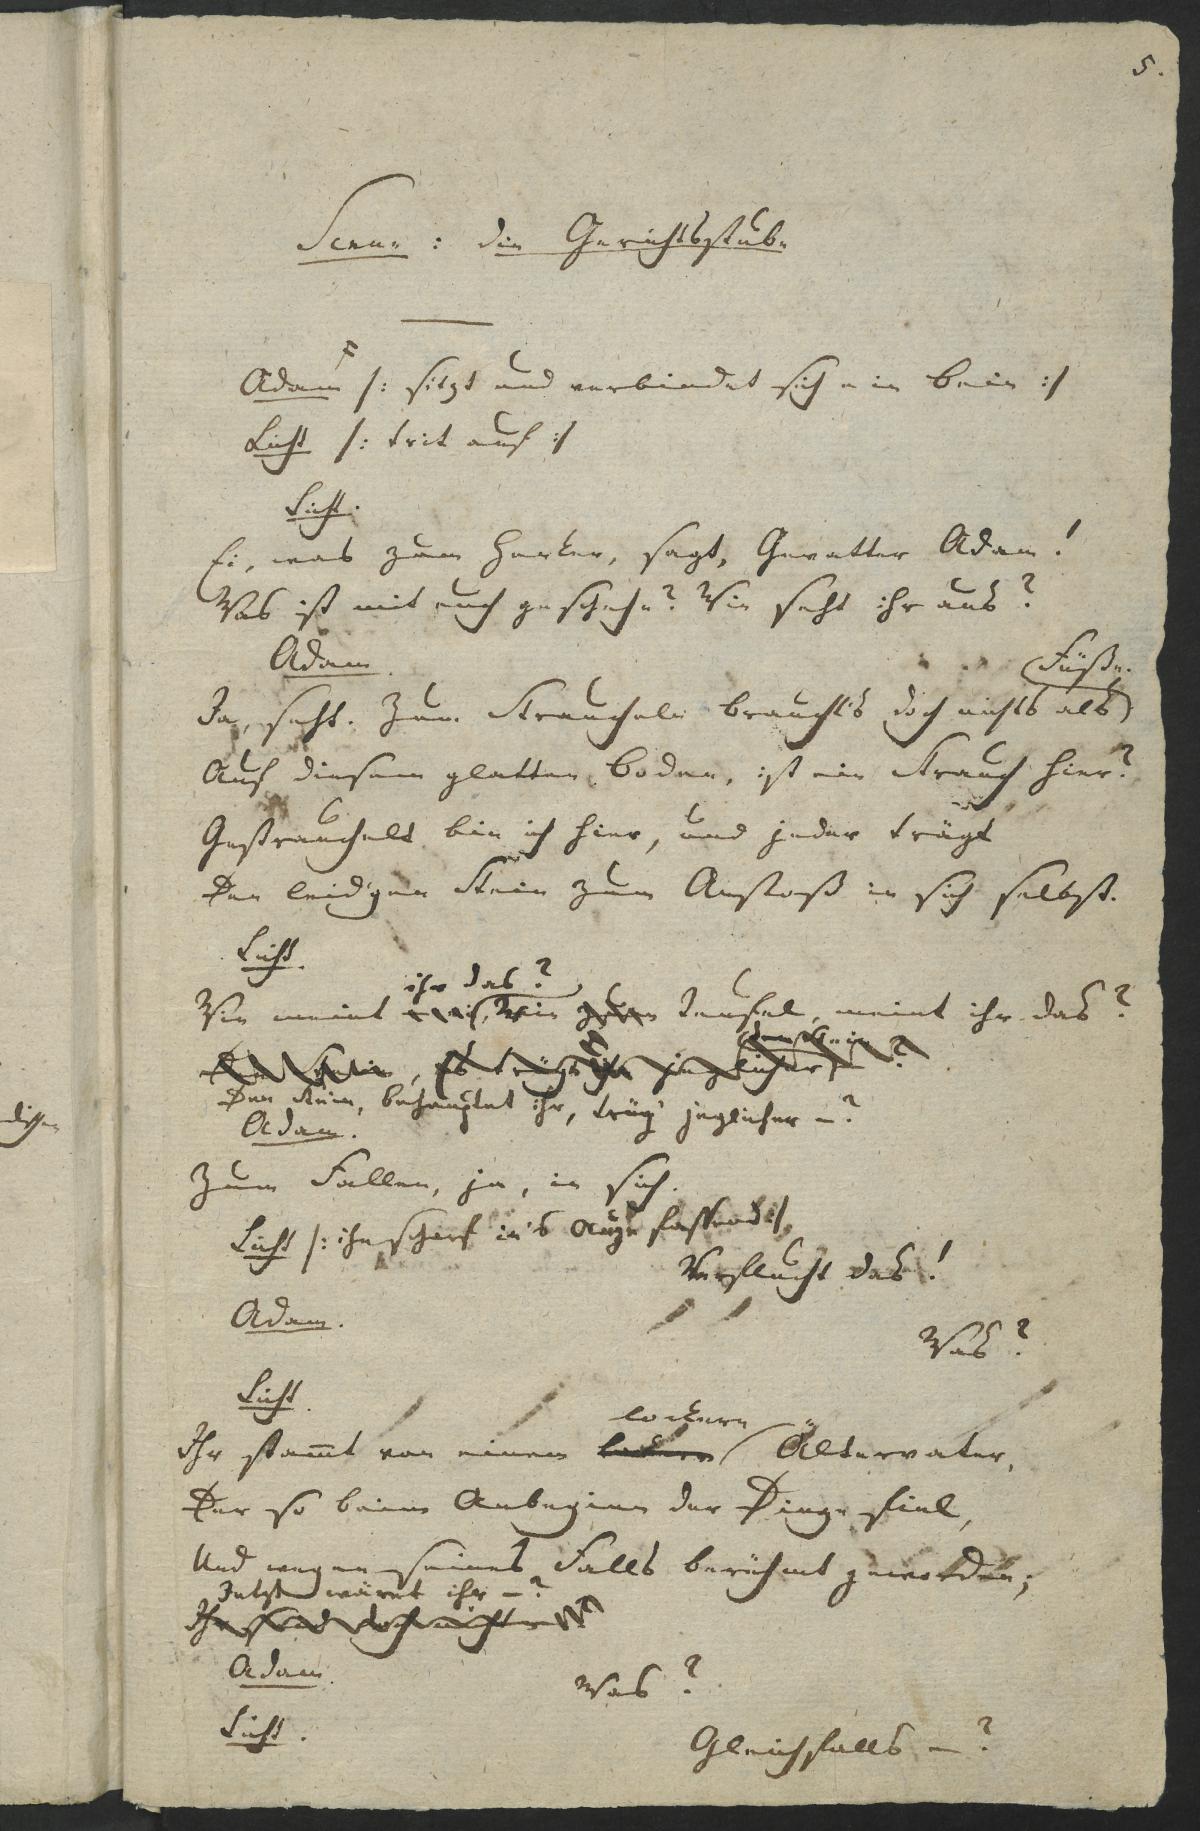 5.
Scene: die Gerichtsstube
Adam /: sitzt und verbindet sich ein Bein :/
Licht /: trit auf :/
Licht.
Ei, was zum Henker, sagt, Gevatter Adam!
Was ist mit euch geschehn? Wie seht ihr aus?
Adam.
Füße.
Ja, seht. Zum Straucheln braucht's doch nichts als
Auf diesem glatten Boden, ist ein Strauch hier?
Gestrauchelt bin ich hier, und jeder trägt
Den leid'gen Stein zum Anstoß in sich selbst.
Licht.
ihr das?
Wie meint Wie zum Teufel, meint ihr das?
den Stein
Der Stein, es trüg jeglicher –?
Den Stein, behauptet ihr, trüg' jeglicher –?
Adam.
Zum Fallen, ja, in sich.
Licht /: ihn scharf in's Auge fassend :/
Verflucht das!
Adam.
Was?
Licht.
lockern
Ihr stam̄t von einem Ältervater,
Der so beim Anbeginn der Dinge fiel,
Und wegen seines Falls berühmt geworden;
Jetzt wäret ihr –?
Ihr seid doch nicht
Adam.
Was?
Licht.
Gleichfalls –?